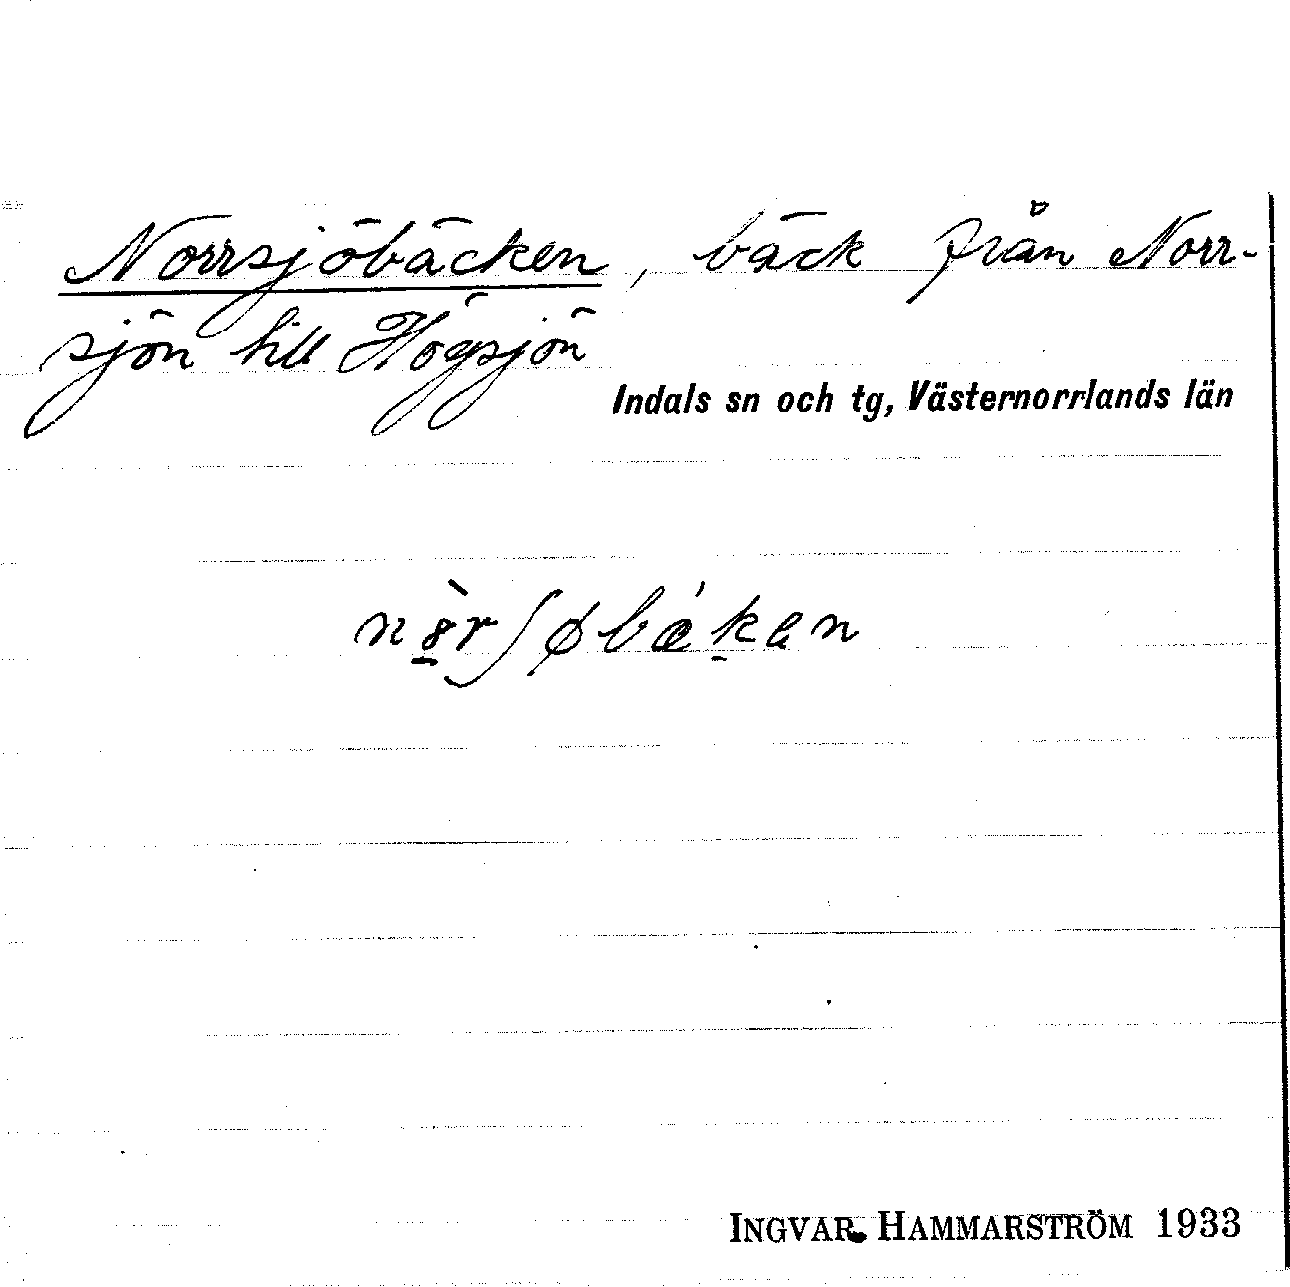 Norrsjöbäcken, bäck från Norr-
sjön till Högsjön
Indals sn och tg, Västernorrlands län
INGVAR HAMMARSTRÖM 1933